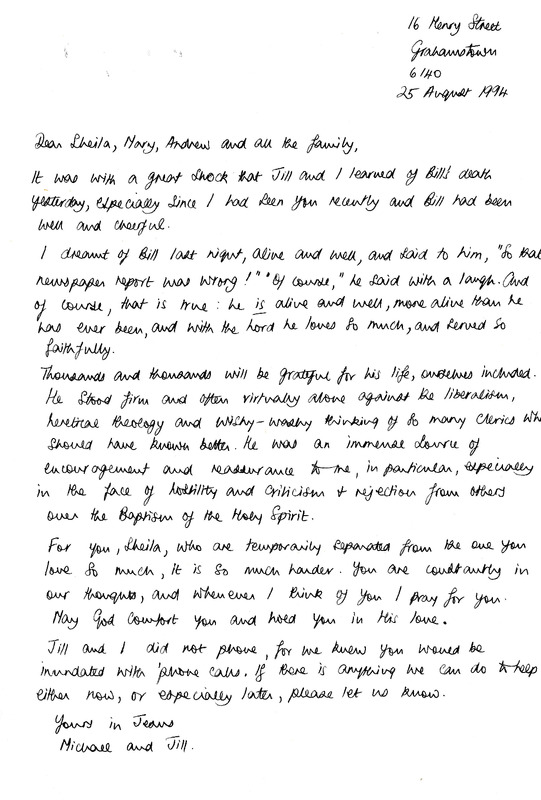 16 Henry Street
Grahamstown
6140
25 August 1994
Dear Sheila, Mary, Andrew and all the family,
It was with a great shock that Jill and I learned of Bill's death
yesterday, especially since I had seen you recently and Bill had been
well and cheerful.
I dreamt of Bill last night, alive and well, and said to him, "So that
newspaper report was wrong!" "Of course," he said with a laugh. And
of course, that is true: he is alive and well, more alive than he
has ever been, and with the Lord he loves so much, and served so
faithfully.
Thousands and thousands will be grateful for his life, ourselves included.
He stood firm and often virtually alone against the liberalism,
heretical theology and wishy-washy thinking of so many clerics who
should have known better. He was an immense source of
encouragement and reassurance to me, in particular, especially
in the face of hostility and criticism + rejection from others
over the Baptism of the Holy Spirit.
For you, Sheila, who are temporarily separated from the one you
love so much, it is so much harder. You are constantly in
our thoughts, and whenever I think of you I pray for you.
May God comfort you and hold you in His love.
Jill and I did not phone, for we knew you would be
inundated with 'phone calls. If there is anything we can do to help
either now, or especially later, please let us know.
Yours in Jesus
Michael and Jill.